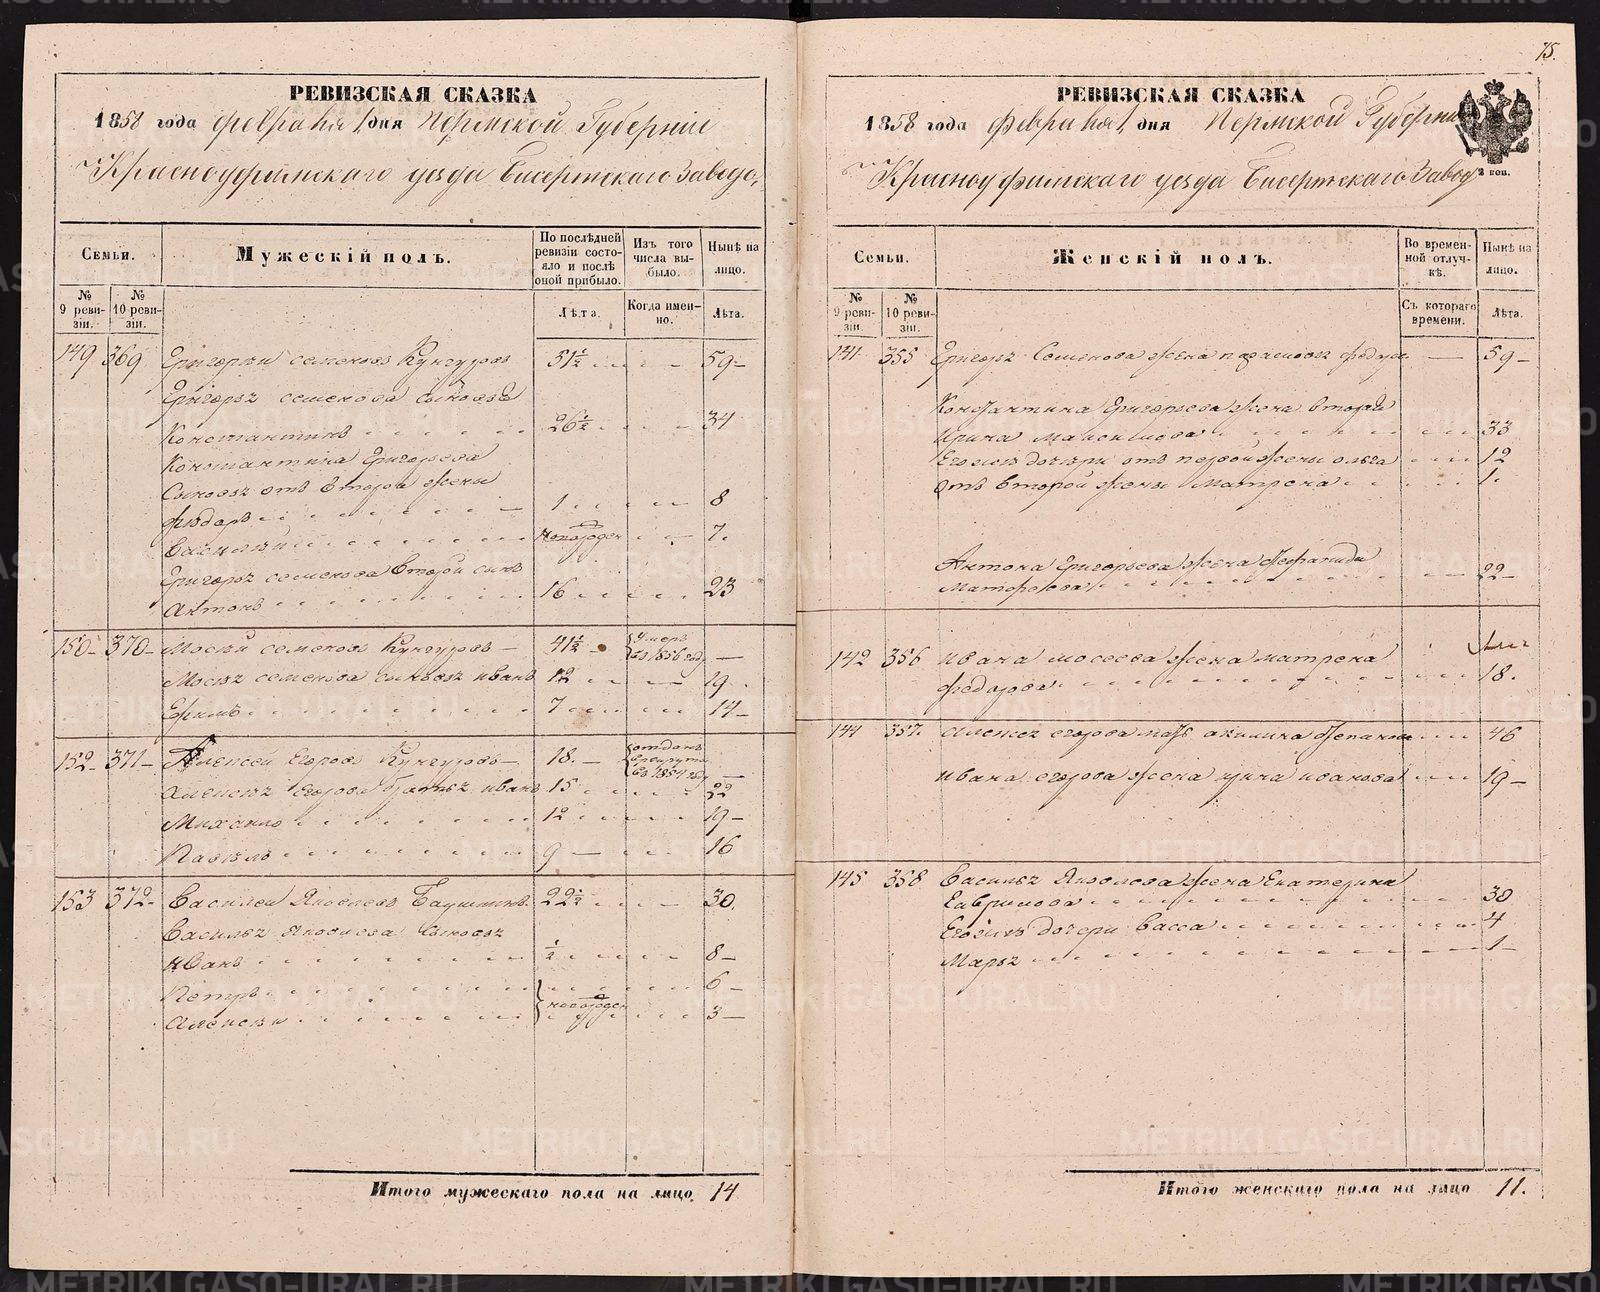 РЕВИЗСКАЯ СКАЗКА
1858 года февраля 1 дня Пермской Губерніи
Красноуфимскаго уезда Бисертскаго Заводо,
Семьи.
Мужескій полъ.
По послѣдней ревизіи состояло и послѣ оной прибыло.
Изъ того числа выбыло.
Нынѣ на лицо.
№ 9 ревизіи.
№ 10 ревизіи.
Лѣта.
Когда именно.
Лѣта.
149 369 Григорій семеновъ Кунгуровъ 51½ 59
Григорья семенова сыновья
Константинъ 26½ 34
Константина Григорьева
Сыновья отъ второй жены
Фѣдоръ 1 8
Василѣй новорожден 7
Григорья семенова второй сынъ
Антонъ 16 23
150 370 Мосѣй семеновъ Кунгуровъ 41½ умеръ въ 1856 году
Мосѣя семенова сыновья иванъ 12 19
Ефимъ 7 14
152 371 Алексей Егоровъ Кунгуровъ 18 отданъ в рекруты въ 1854 году
Алексѣя Егорова братья иванъ 15 22
Михаило 12 19
Павѣлъ 9 16
153 372 Василей Яковлевъ 22½ 30
Василья Яковлева сыновья
Иванъ ½ 8
Петръ 6
новорожден
Алексѣй 3
Итого мужескаго пола на лицо 14
75.
РЕВИЗСКАЯ СКАЗКА
1858 года февраля 1 дня Пермской Губерніи
Красноуфимскаго уезда Бисертскаго Завод
2 коп.
Семьи.
Женскій полъ.
Во временной отлучкѣ.
Нынѣ на лицо.
№ 9 ревизіи.
№ 10 ревизіи.
Съ котораго времени.
Лѣта.
141 355 Григорья Семенова жена 59
Константина Григорьева жена вторая
ирина максимова 33
Его же дочери отъ первой жены ольга 12
отъ второй жены Матрена 1
Антона Григорьева жена
22
142 356 ивана мосеева жена матрена
федорова 18
144 357 алексея егорова мать акилина 46
ивана егорова жена ирина иванова 19
145 358 Василья Яковлева жена Екатерина
Гаврилова 30
Его же дочери Васса 4
Марья 1
Итого женскаго пола на лицо 11.
METRIKI.GASO-URAL.RU